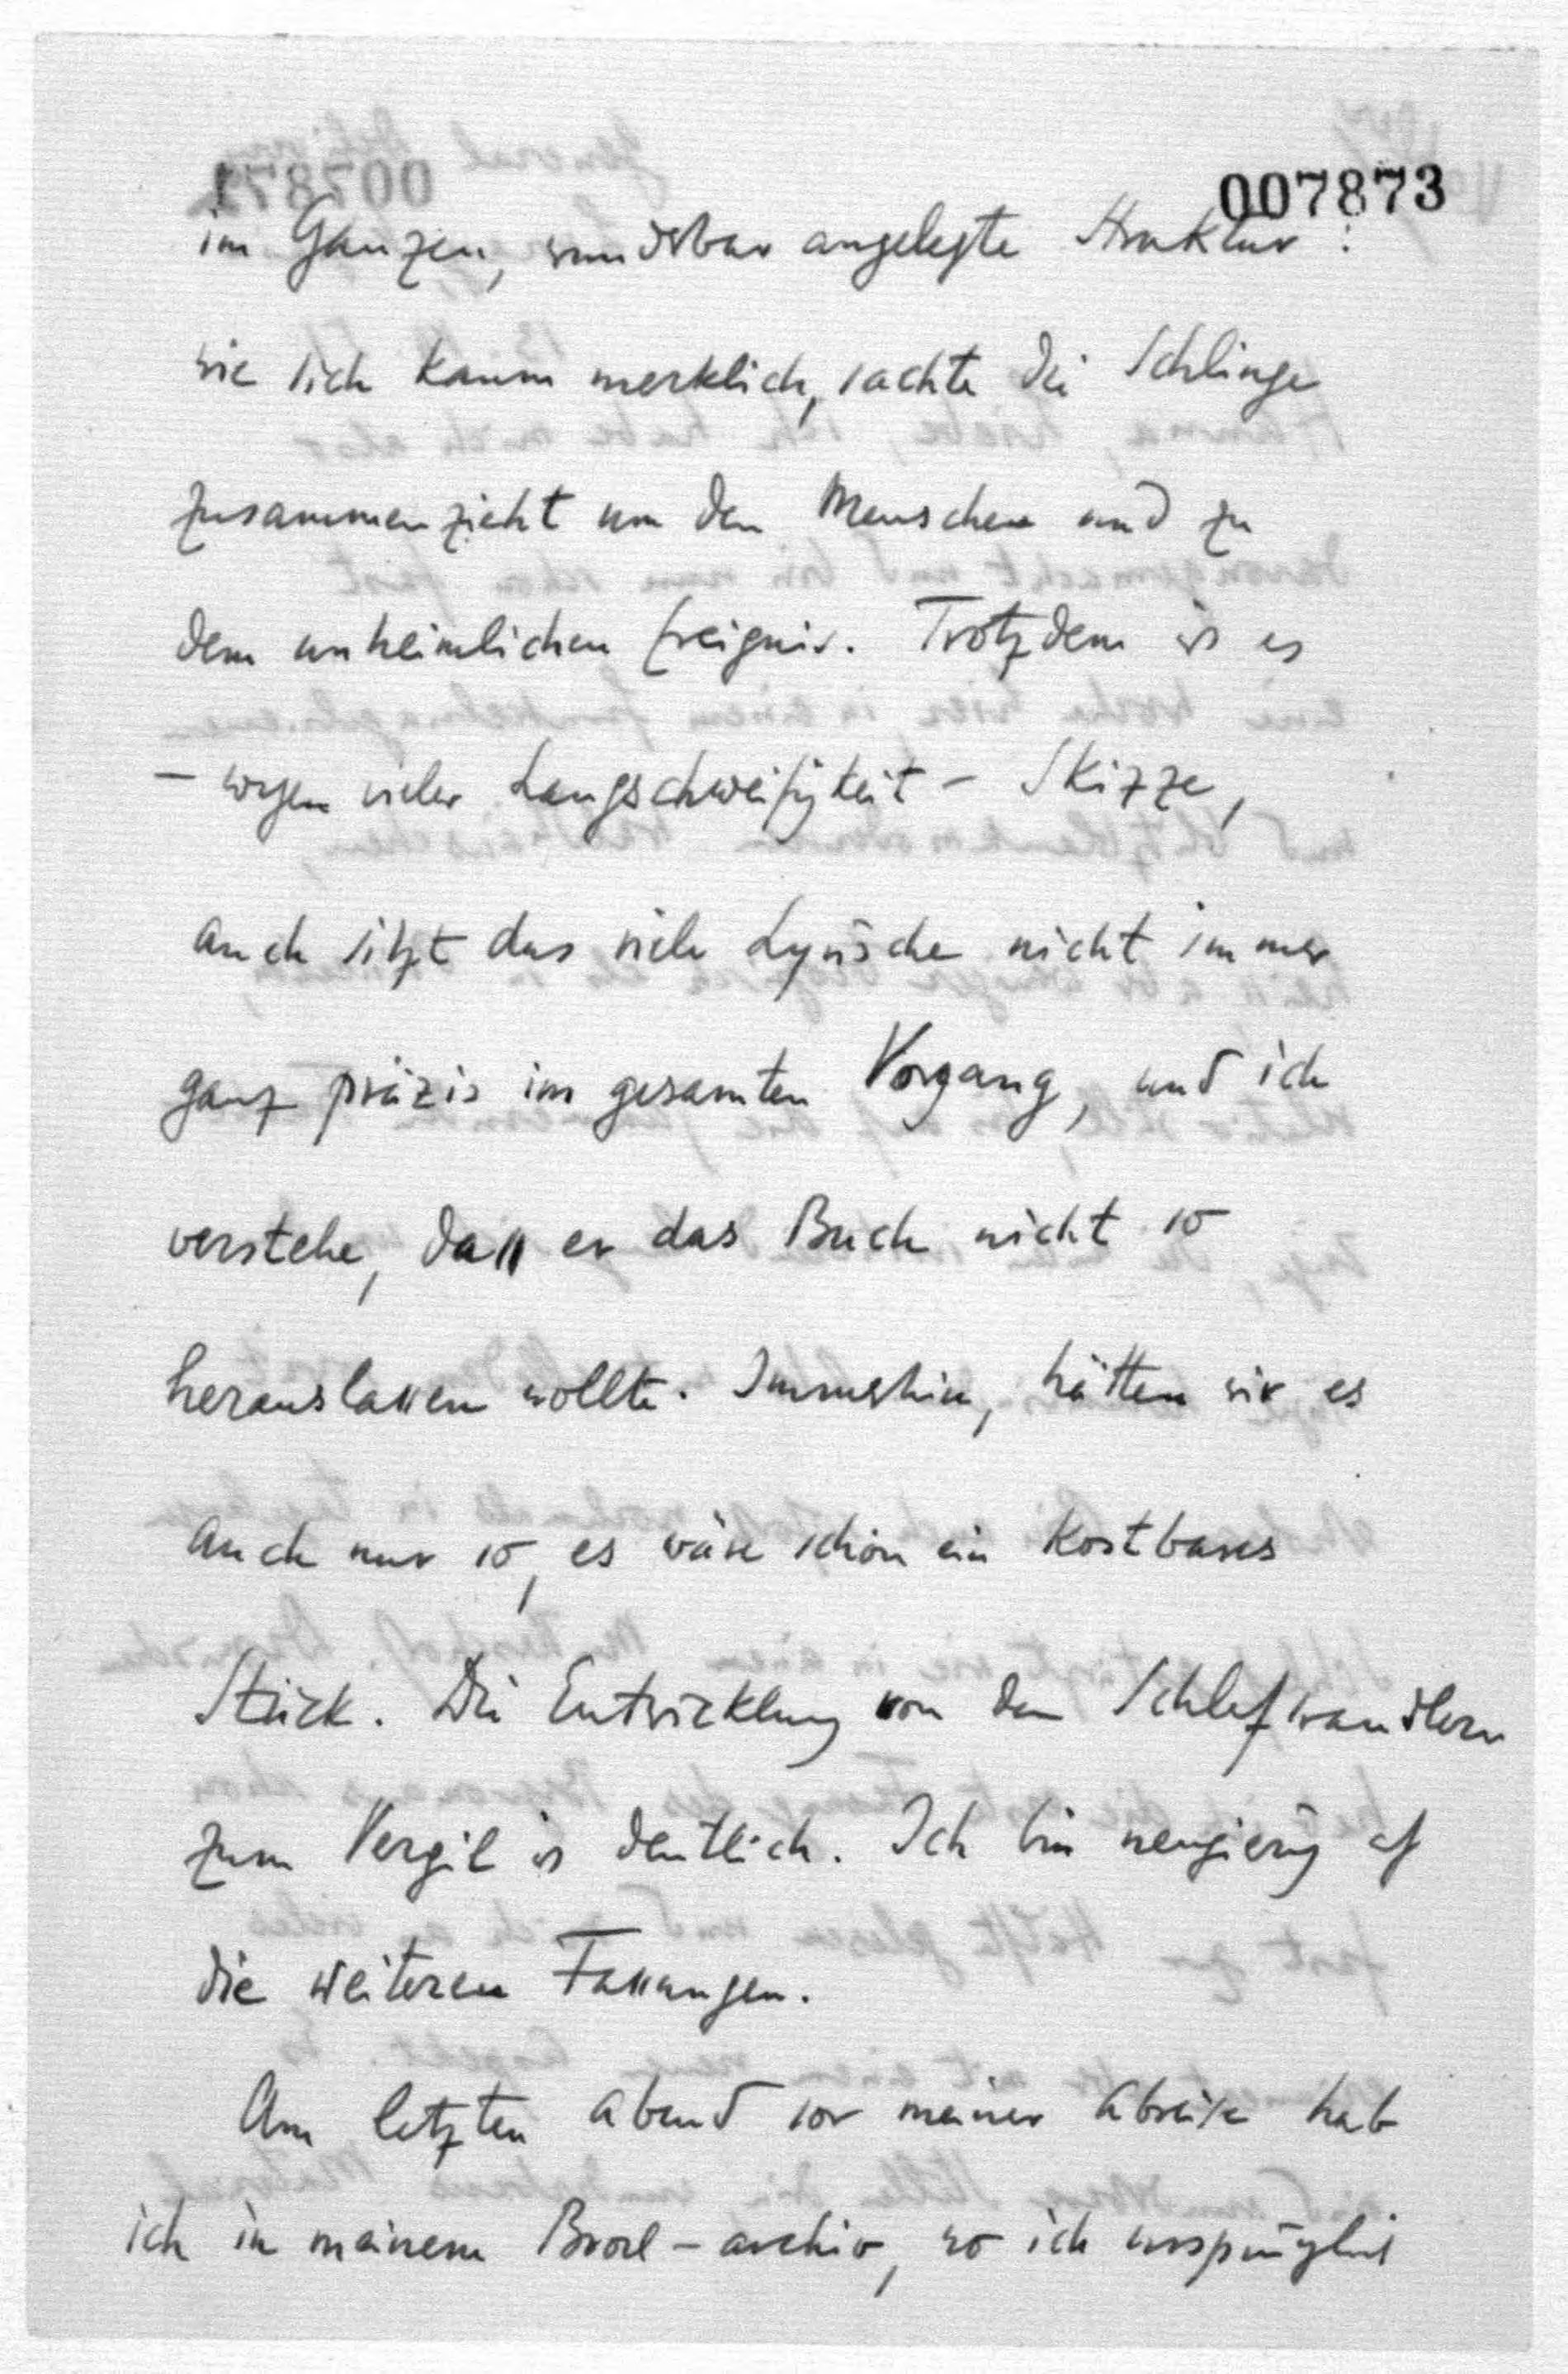 007873
im Ganzen, wunderbar angelegte Struktur:
wie sich kaum merklich, sachte die Schlinge
zusammenzieht um den Menschen und zu
dem unheimlichen Ereignis. Trotzdem is es
– wegen vieler Langschweifigkeit – Skizze,
auch sitzt das viele Lyrische nicht immer
ganz präzis im gesamten Vorgang, und ich
verstehe, dass er das Buch nicht so
herauslassen wollte. Immerhin, hätten wir es
auch nur so, es wäre schon ein kostbares
Stück. Die Entwicklung von den Schlafwandlern
zum Vergil is deutlich. Ich bin neugierig auf
die weiteren Fassungen.
Am letzten Abend vor meiner Abreise hab
ich in meinem Broch-archiv, wo ich ursprünglich